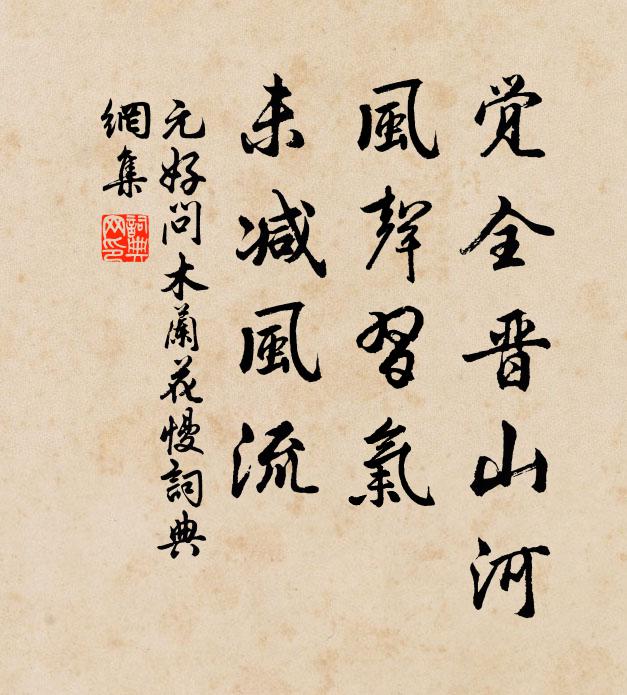 觉全晋山河
風聲習氣
未減風流
元好問木蘭花慢詞典
網集
詞典
网印